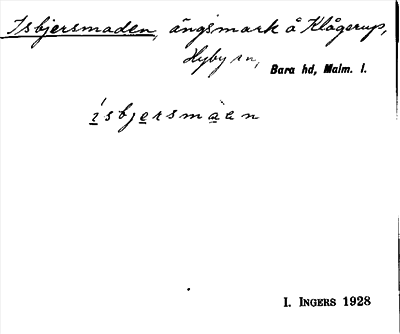 Isbjersmaden, ängsmark å Klågerup,
Hyby sn, Bara hd, Malm. l.
isbjersmäen
I. INGERS 1928